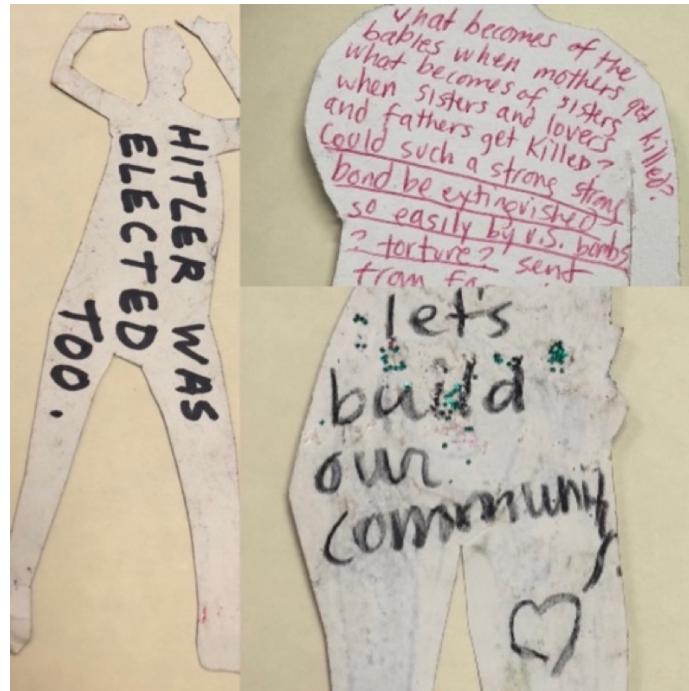 HITLER WAS
ELECTED
TOO.
what becomes of the
babies when mothers get killed?
what becomes of sisters
when sisters and lovers
and fathers get killed?
Could such a strong strong
bond be extinguished
so easily by U.S. bombs
? torture? sent
from
let's
build
our
community.